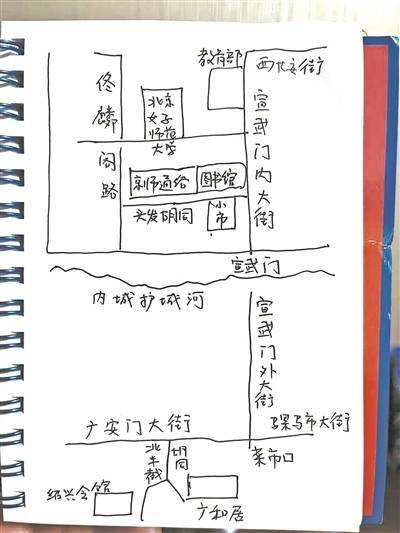 教育部
西长安街
佟麟阁路
北京
女子
师范
大学
宣武门内大街
京师通俗
图书馆
头发胡同
小市
宣武门
内城护城河
宣武门外大街
骡马市大街
广安门大街
菜市口
北半截
胡同
绍兴会馆
广和居